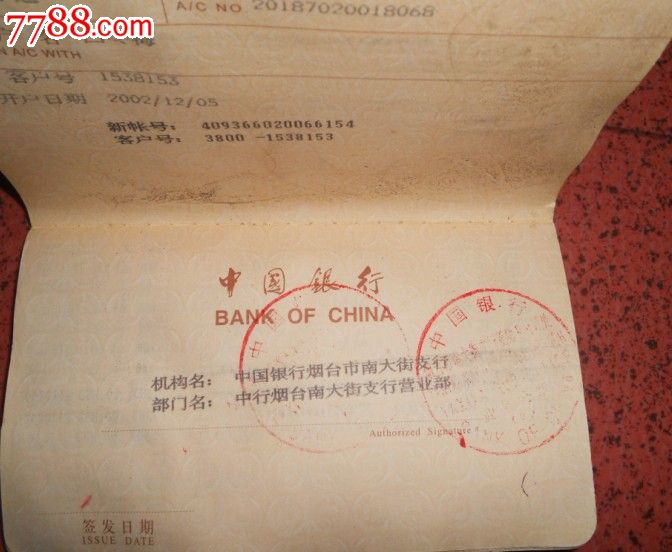 7788.com
A/C NO 20187020018068
A/C WITH
客户号 1538153
开户日期 2002/12/05
新帐号: 409366020066154
客户号: 3800 -1538153
中国銀行
BANK OF CHINA
中国银行
机构名: 中国银行烟台市南大街支行
部门名: 中行烟台南大街支行营业部
Authorized Signature
签发日期
ISSUE DATE